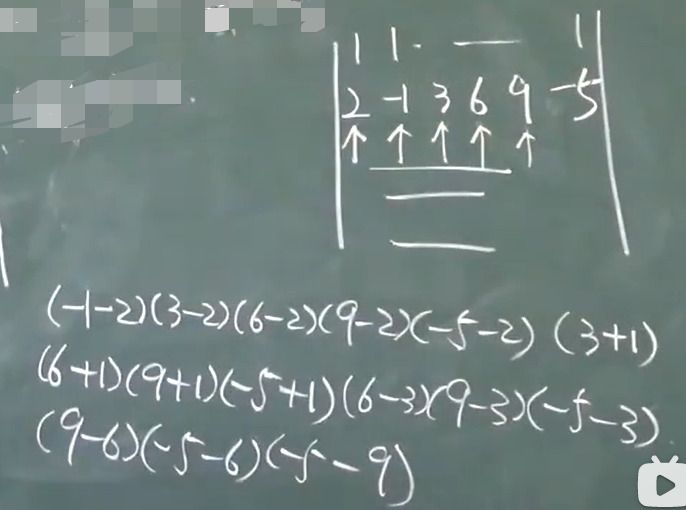 1 1 . — 1
2 -1 3 6 9 -5
↑ ↑ ↑ ↑ ↑
(-1-2)(3-2)(6-2)(9-2)(-5-2) (3+1)
(6+1)(9+1)(-5+1)(6-3)(9-3)(-5-3)
(9-6)(-5-6)(-5-9)